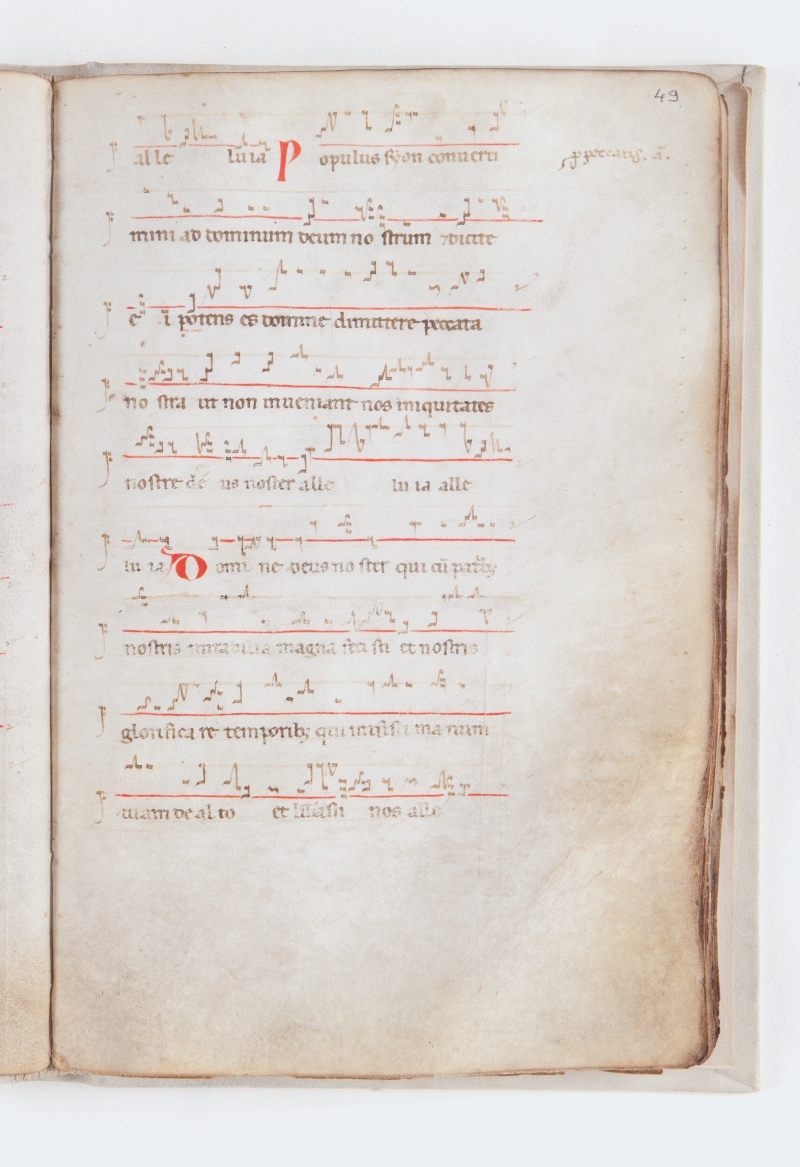 49
alle luia Populus syon conuerti
p peccatis. a.
mini ad dominum deum no strum dicite
e i potens es domine dimittere peccata
no stra ut non inueniant nos iniquitates
nostre de us noster alle lu ia alle
lu ia Domi ne deus no ster qui cu
nostris mirabilia magna et nostris
glorifica re temporib; qui ma num
tuam de al to et nos alle